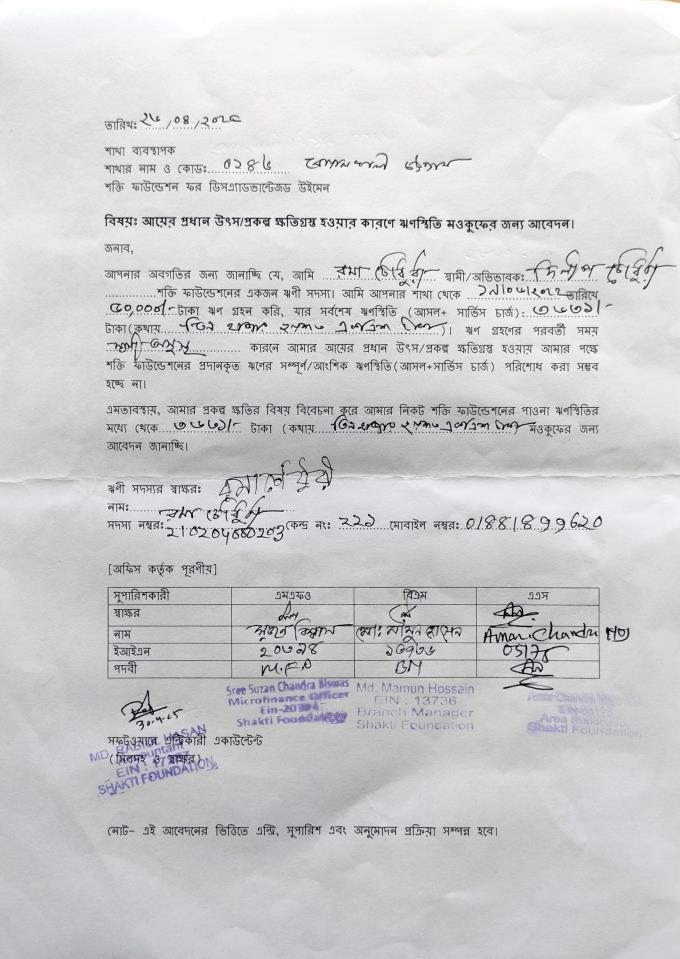 তারিখ: ২৬/০৪/২০২৫
শাখা ব্যবস্থাপক
শাখার নাম ও কোড: ০২৪৬
শক্তি ফাউন্ডেশন ফর ডিসএ্যাডভান্টেজড উইমেন
বিষয়: আয়ের প্রধান উৎস/প্রকল্প ক্ষতিগ্রস্থ হওয়ার কারণে ঋণস্থিতি মওকুফের জন্য আবেদন।
জনাব,
আপনার অবগতির জন্য জানাচ্ছি যে, আমি রমা চৌধুরী স্বামী/অভিভাবক: দিলীপ চৌধুরী
শক্তি ফাউন্ডেশনের একজন ঋণী সদস্য। আমি আপনার শাখা থেকে তারিখে
৫০,০০০/- টাকা ঋণ গ্রহন করি, যার সর্বশেষ ঋণস্থিতি (আসল+ সার্ভিস চার্জ): ৩৬৩১/-
টাকা (কথায় )। ঋণ গ্রহণের পরবর্তী সময়
কারনে আমার আয়ের প্রধান উৎস/প্রকল্প ক্ষতিগ্রস্থ হওয়ায় আমার পক্ষে
শক্তি ফাউন্ডেশনের প্রদানকৃত ঋণের সম্পূর্ণ/আংশিক ঋণস্থিতি (আসল+সার্ভিস চার্জ) পরিশোধ করা সম্ভব
হচ্ছে না।
এমতাবস্থায়, আমার প্রকল্প ক্ষতির বিষয় বিবেচনা করে আমার নিকট শক্তি ফাউন্ডেশনের পাওনা ঋণস্থিতির
মধ্যে থেকে ৩৬৩১/- টাকা (কথায় মওকুফের জন্য
আবেদন জানাচ্ছি।
ঋণী সদস্যর স্বাক্ষর:
নাম: রমা চৌধুরী
সদস্য নম্বর: কেন্দ্র নং: ২২১ মোবাইল নম্বর: 01881899620
[অফিস কর্তৃক পূরণীয়]
সুপারিশকারী এমএফও বিএম এএস
স্বাক্ষর
নাম সুজন বিশ্বাস মো: মামুন হোসেন Amar Chandra
ইআইএন ১৩৭৩৬
পদবী M.F.O BM
Sree Suzan Chandra Biswas
Microfinance Officer
Shakti Foundation
Md. Mamun Hossain
EIN : 13736
Branch Manager
Shakti Foundation
Shakti Foundation
30-4-25
সফটওয়ারে এন্ট্রিকারী একাউন্টেন্ট
(সিলসহ ও স্বাক্ষর)
SHAKTI FOUNDATION
নোট- এই আবেদনের ভিত্তিতে এন্ট্রি, সুপারিশ এবং অনুমোদন প্রক্রিয়া সম্পন্ন হবে।